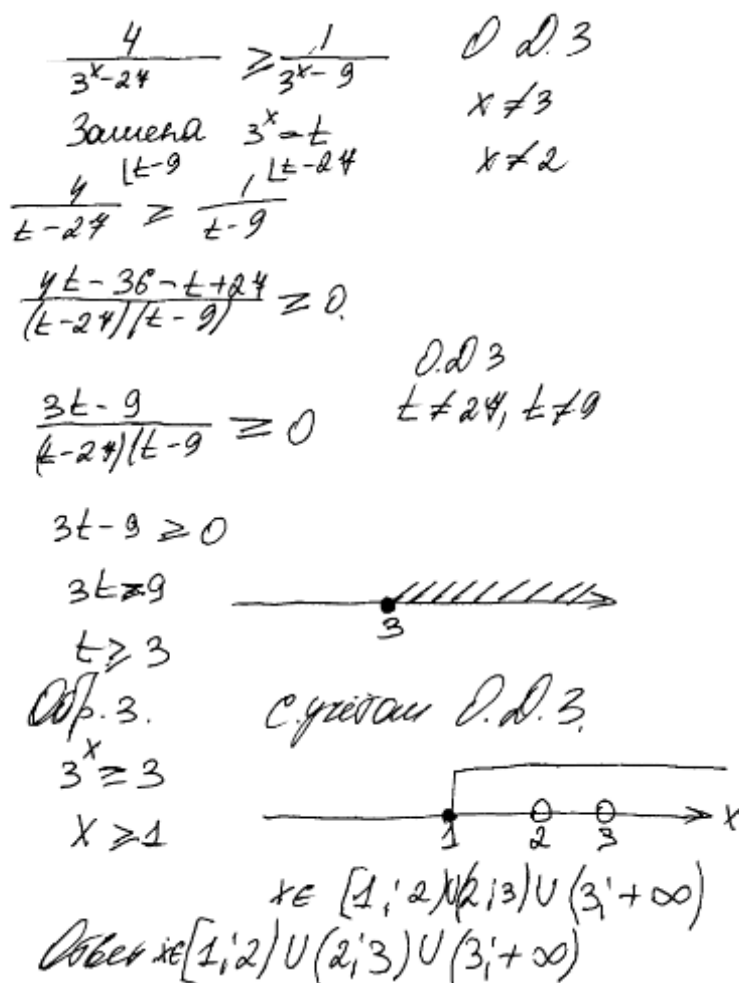 4/(3^x-27) ≥ 1/(3^x-9) О.Д.З
Замена 3^x=t x≠3
x≠2
4⌊t-9/(t-27) ≥ 1⌊t-27/(t-9)
(4t-36-t+27)/((t-27)(t-9)) ≥ 0.
О.Д З
t≠27, t≠9
(3t-9)/((t-27)(t-9) ≥ 0
3t-9 ≥ 0
3t≥9
3
t≥3
Обр.З. С учётом О.Д.З.
3^x≥3
x≥1
1 2 3 x
x∈ [1;2)∪(2;3)∪(3;+∞)
Ответ x∈[1;2)∪(2;3)∪(3;+∞)